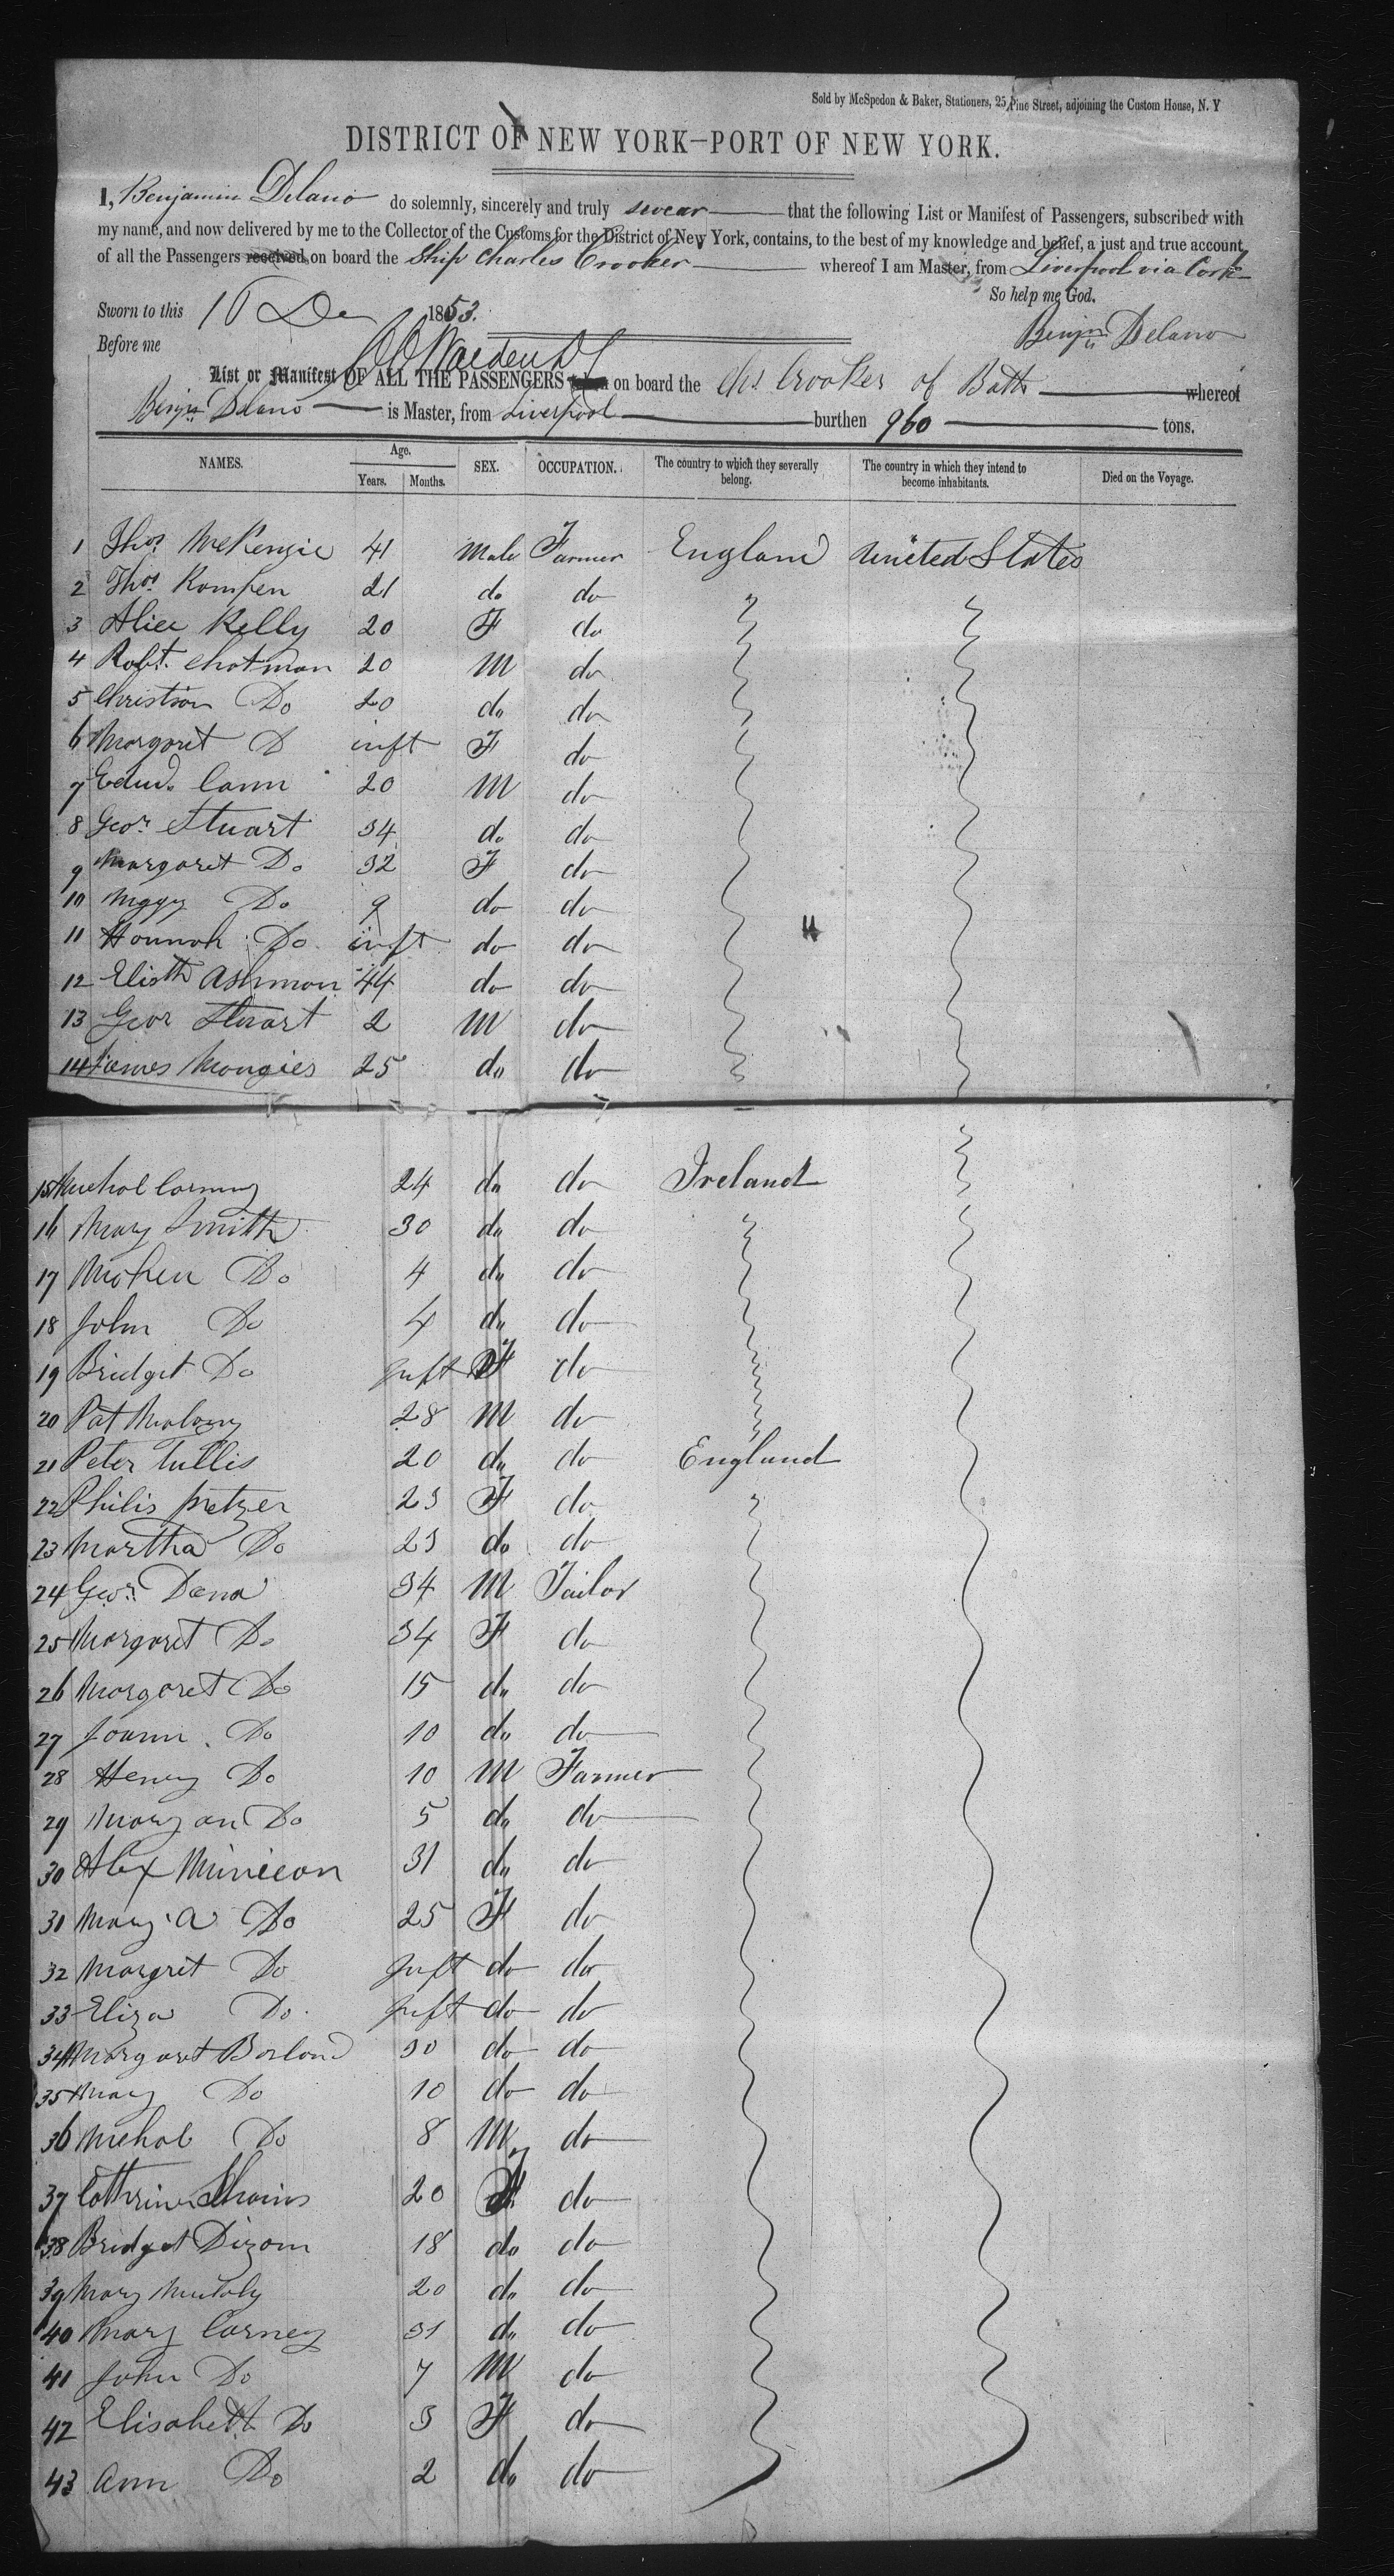 Sold by McSpedon & Baker, Stationers, 25 Pine Street, adjoining the Custom House, N. Y
DISTRICT OF NEW YORK—PORT OF NEW YORK.
I, Benjamin Delano do solemnly, sincerely and truly swear that the following List or Manifest of Passengers, subscribed with
my name, and now delivered by me to the Collector of the Customs for the District of New York, contains, to the best of my knowledge and belief, a just and true account
of all the Passengers received on board the Ship Charles Crooker whereof I am Master, from Liverpool via Cork
So help me God.
Sworn to this 16 De 1853.
Before me Benjn Delano
List or Manifest OF ALL THE PASSENGERS taken on board the Chs Crooker of Bath whereof
Benjn Delano is Master, from Liverpool burthen 960 tons.
NAMES. Age. Years. Months. SEX. OCCUPATION. The country to which they severally belong. The country in which they intend to become inhabitants. Died on the Voyage.
1 Thos McKenzie 41 Male Farmer England United States
2 Thos Kompen 21 do do
3 Alice Kelly 20 F do
4 Robt. Chatman 20 M do
5 Christian Do 20 do do
6 Margaret D inft F do
7 Edwd. Cann 20 M do
8 Geor Stuart 34 do do
9 Margaret Do 32 F do
10 Do 9 do do
11 Hannah Do inft do do
12 Elisth Ashman 44 do do
13 Geor Stuart 2 M do
14 James Mongies 25 do do
15 24 do do Ireland
16 Mary Smith 30 do do
17 Do 4 do do
18 John Do 4 do do
19 Bridget Do Inft F do
20 Pat Malony 28 M do
21 Peter Tullis 20 do do England
22 Philis Metzer 23 F do
23 Martha Do 23 do do
24 Geor Dana 34 M Tailor
25 Margaret Do 34 F do
26 Margaret Do 15 do do
27 Joann Do 10 do do
28 Henry Do 10 M Farmer
29 Mary an Do 5 do do
30 Alex Minieon 31 do do
31 Mary A Do 25 F do
32 Margret Do Inft do do
33 Eliza Do Inft do do
34 Margaret Borland 30 do do
35 Mary Do 10 do do
36 Michal Do 8 M do
37 Cathrine 20 F do
38 Bridget Dizom 18 do do
39 Mary 20 do do
40 Mary Carney 31 do do
41 John Do 7 M do
42 Elisabett Do 3 F do
43 Ann Do 2 do do